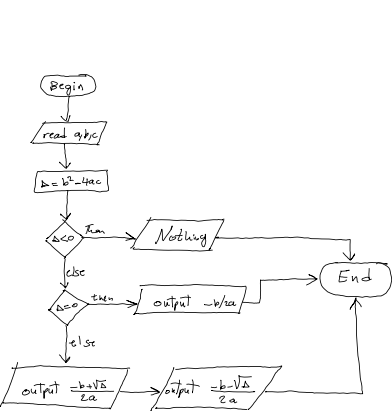 Begin
read a,b,c
Δ=b²-4ac
Δ<0
Then
Nothing
else
End
Δ=0
then
output -b/2a
else
output -b+√Δ/2a
output -b-√Δ/2a